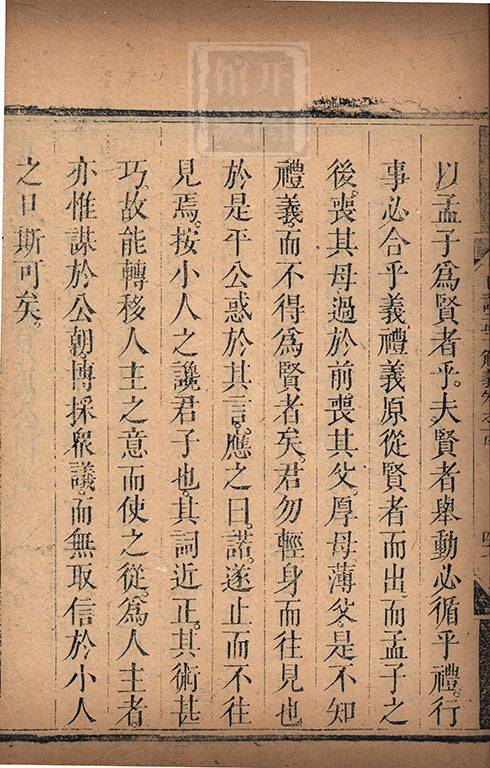 以孟子爲賢者乎。夫賢者舉動必循乎禮。行
事必合乎義。禮義原從賢者而出。而孟子之
後。喪其母過於前喪其父。厚母薄父。是不知
禮義。而不得爲賢者矣。君勿輕身而往見也
於是平公惑於其言。應之曰。諾。遂止而不往
見焉。按小人之讒君子也。其詞近正。其術甚
巧。故能轉移人主之意而使之從。爲人主者
亦惟謀於公朝。博採衆議。而無取信於小人
之口斯可矣。